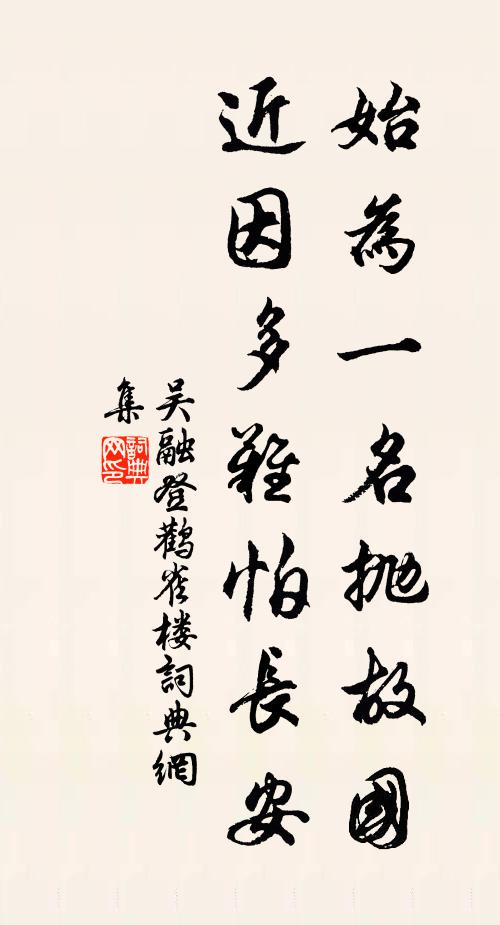 始為一名拋故國
近因多難怕長安
吴融登鹳雀楼詞典網
集
詞典网印